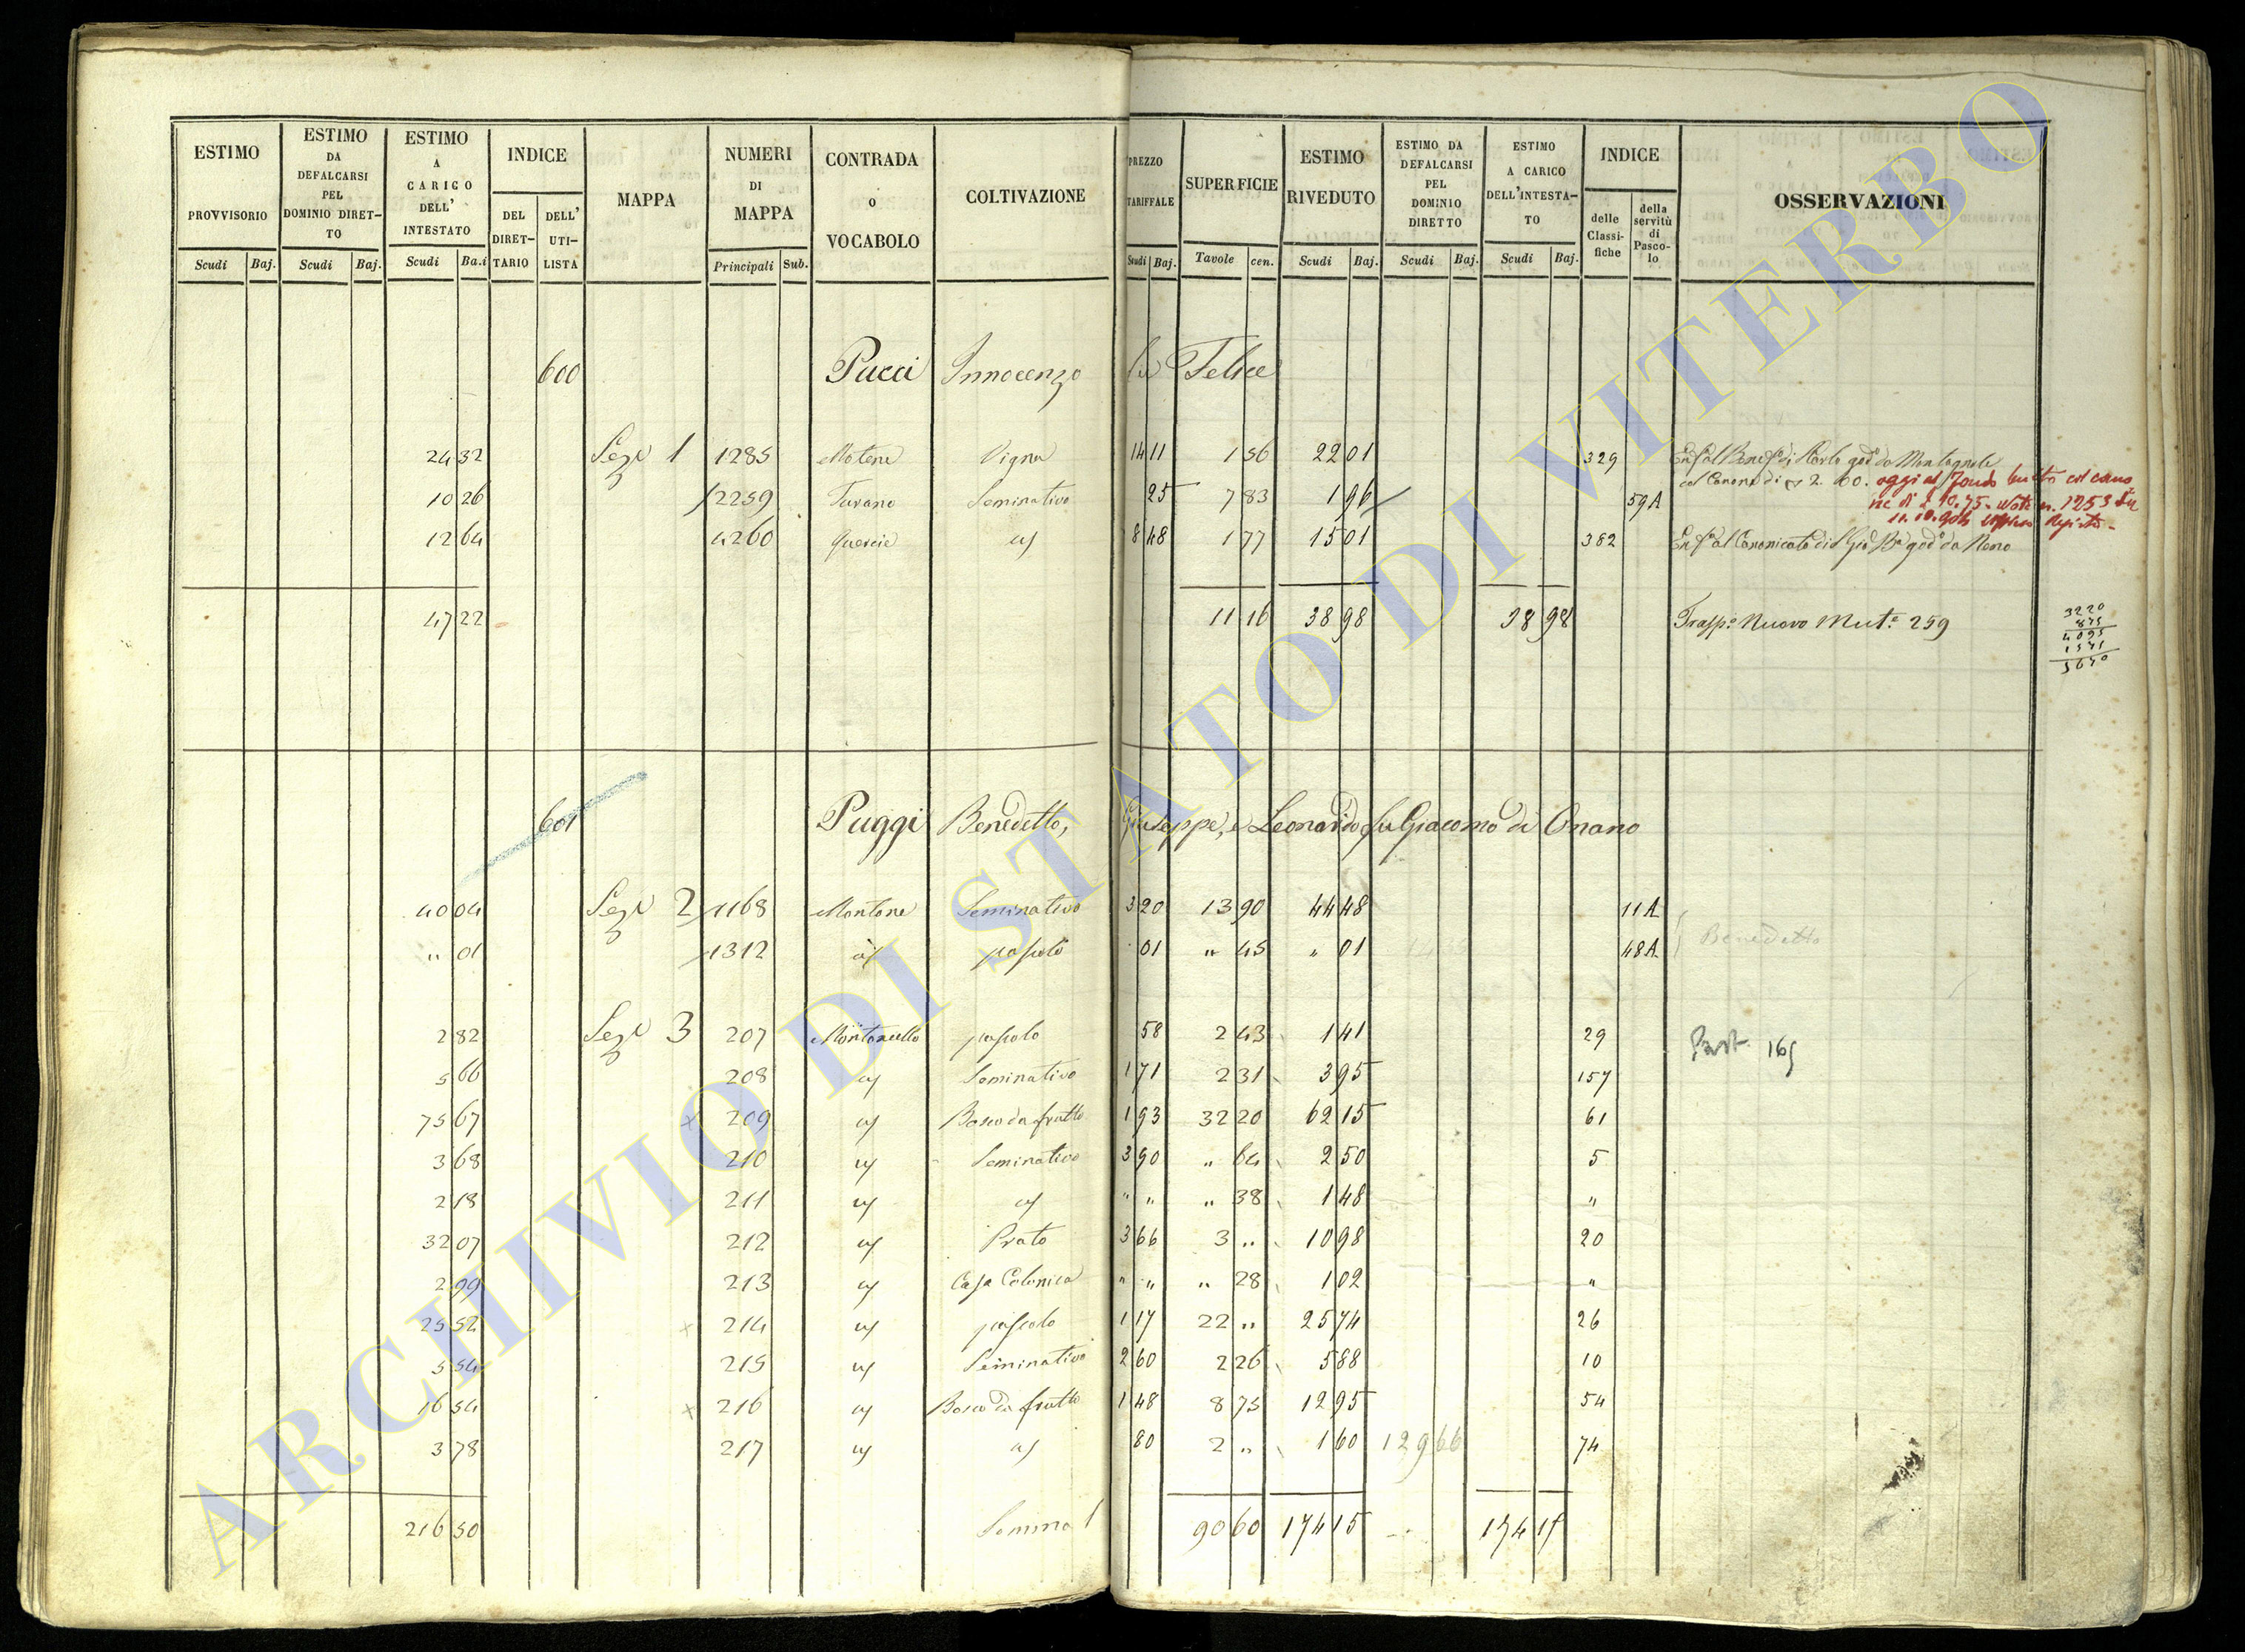 ESTIMO PROVVISORIO
Scudi Baj.
ESTIMO DA DEFALCARSI PEL DOMINIO DIRET-TO
Scudi Baj.
ESTIMO A CARICO DELL' INTESTATO
Scudi Ba.i
INDICE
DEL DIRET-TARIO
DELL' UTI-LISTA
MAPPA
NUMERI DI MAPPA
Principali Sub.
CONTRADA o VOCABOLO
COLTIVAZIONE
PREZZO TARIFFALE
Scudi Baj.
SUPERFICIE
Tavole cen.
ESTIMO RIVEDUTO
Scudi Baj.
ESTIMO DA DEFALCARSI PEL DOMINIO DIRETTO
Scudi Baj.
ESTIMO A CARICO DELL'INTESTA-TO
Scudi Baj.
INDICE
delle Classi-fiche
della servitù di Pasco-lo
OSSERVAZIONI
600 Pucci Innocenzo fu Felice
24 32 Sezе 1 1285 Vigna 14 11 1 56 22 01 329
col Canone di 2. 60. oggi
10 26 2259 Seminativo 25 7 83 1 96 59A
12 64 4260 Quercie 8 48 1 77 15 01 382
47 22 11 16 38 98 38 98 Trasp.o Nuovo Mut.e 259
3220
875
4095
1575
5670
601 Puggi Benedetto, Giuseppe, e Leonardo fu Giacomo di Onano
40 04 2 1168 Montone Seminativo 3 20 13 90 44 48 11A
" 01 1312 pascolo 01 " 45 " 01 48A Benedetto
2 82 3 207 Montoncello pascolo 58 2 43 1 41 29 Part. 165
5 66 208 Seminativo 1 71 2 31 3 95 157
75 67 x 209 Bosco da frutto 1 93 32 20 62 15 61
3 68 210 Seminativo 3 90 " 64 2 50 5
2 18 211 " " " 38 1 48 "
32 07 212 Prato 3 66 3 " 10 98 20
2 99 213 Casa Colonica " " " 28 1 02 "
25 52 x 214 pascolo 1 17 22 " 25 74 26
5 54 215 Seminativo 2 60 2 26 5 88 10
16 54 x 216 Bosco da frutto 1 48 8 75 12 95 54
3 78 217 80 2 " 1 60 129 66 74
216 50 Somma 90 60 174 15 174 15
ARCHIVIO DI STATO DI VITERBO